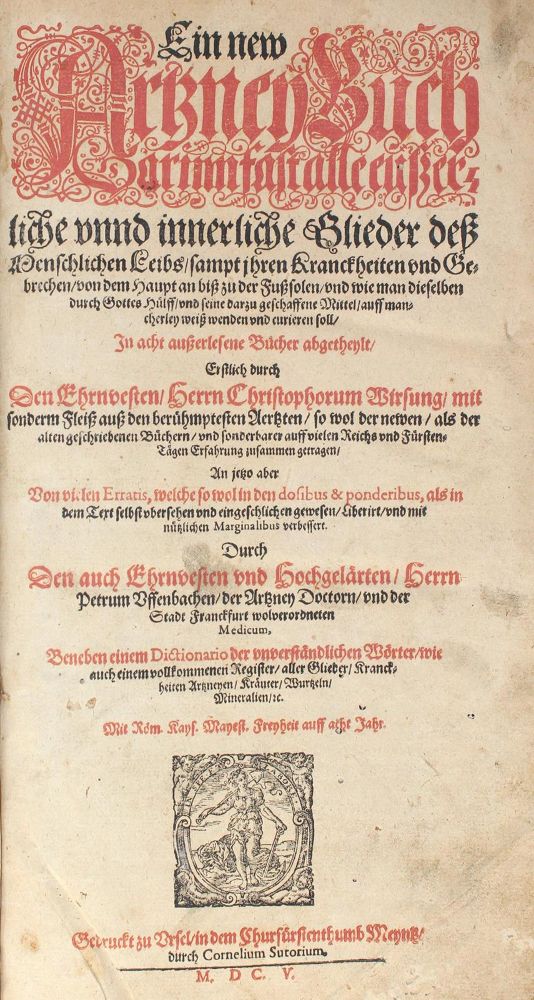 Ein new
Artzney Buch
Darinn fast alle eußer-
liche vnnd innerliche Glieder deß
Menschlichen Leibs/ sampt jhren Kranckheiten vnd Ge-
brechen/ von dem Haupt an biß zu der Fußsolen/ vnd wie man dieselben
durch Gottes Hülff/ vnd seine darzu geschaffene Mittel/ auff man-
cherley weiß wenden vnd curieren soll/
In acht außerlesene Bücher abgetheylt/
Erstlich durch
Den Ehrnvesten/ Herrn Christophorum Wirsung/ mit
sonderm Fleiß auß den berühmptesten Aertzten/ so wol der newen/ als der
alten geschriebenen Büchern/ vnd sonderbarer auff vielen Reichs vnd Fürsten-
Tägen Erfahrung zusammen getragen/
An jetzo aber
Von vielen Erratis, welche so wol in den dosibus & ponderibus, als in
dem Text selbst vbersehen vnd eingeschlichen gewesen/ Liberirt/ vnd mit
nützlichen Marginalibus verbessert.
Durch
Den auch Ehrnvesten vnd Hochgelärten/ Herrn
Petrum Vffenbachen/ der Artzney Doctorn/ vnd der
Stadt Franckfurt wolverordneten
Medicum,
Beneben einem Dictionario der vnverständlichen Wörter/ wie
auch einem vollkommenen Register/ aller Glieder/ Kranck-
heiten Artzneyen/ Kräuter/ Wurtzeln/
Mineralien/ ꝛc.
Mit Röm. Kays. Mayest. Freyheit auff acht Jahr.
Gedruckt zu Vrsel/ in dem Churfürstenthumb Meyntz/
durch Cornelium Sutorium.
M. D C. V.